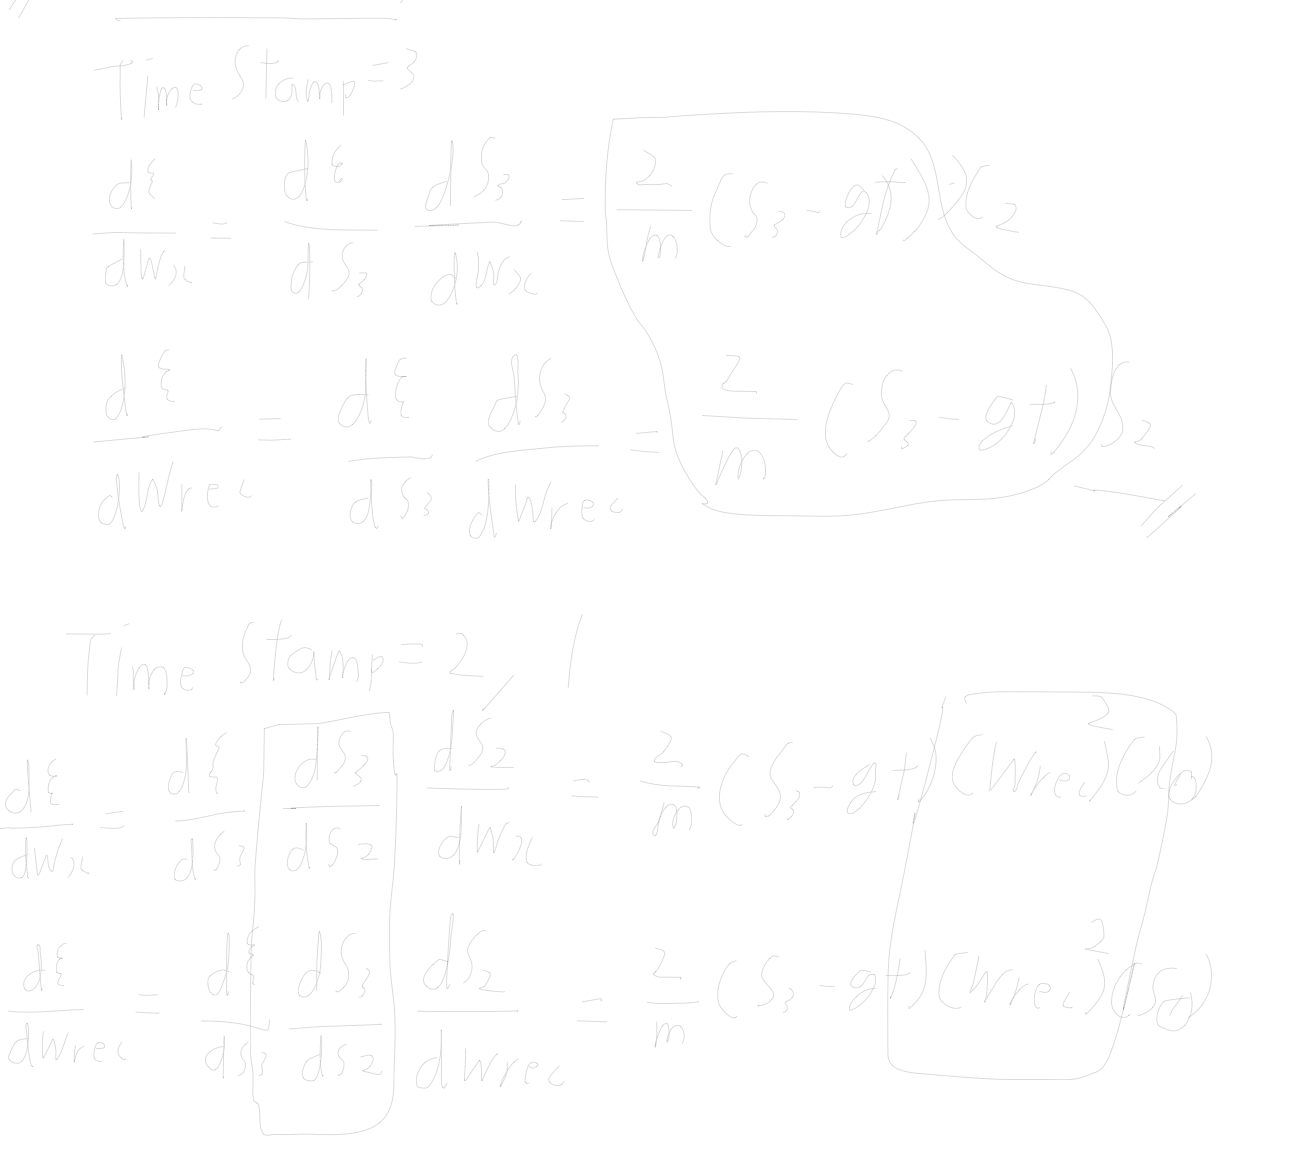 Time Stamp = 3
dε/dWx = dε/dS3 dS3/dWx = 2/m (S3 - gt) X2
dε/dWrec = dε/dS3 dS3/dWrec = 2/m (S3 - gt) S2
Time Stamp = 2, 1
dε/dWx = dε/dS3 dS3/dS2 dS2/dWx = 2/m (S3 - gt) (Wrec)² (X0)
dε/dWrec = dε/dS3 dS3/dS2 dS2/dWrec = 2/m (S3 - gt) (Wrec)² (S0)